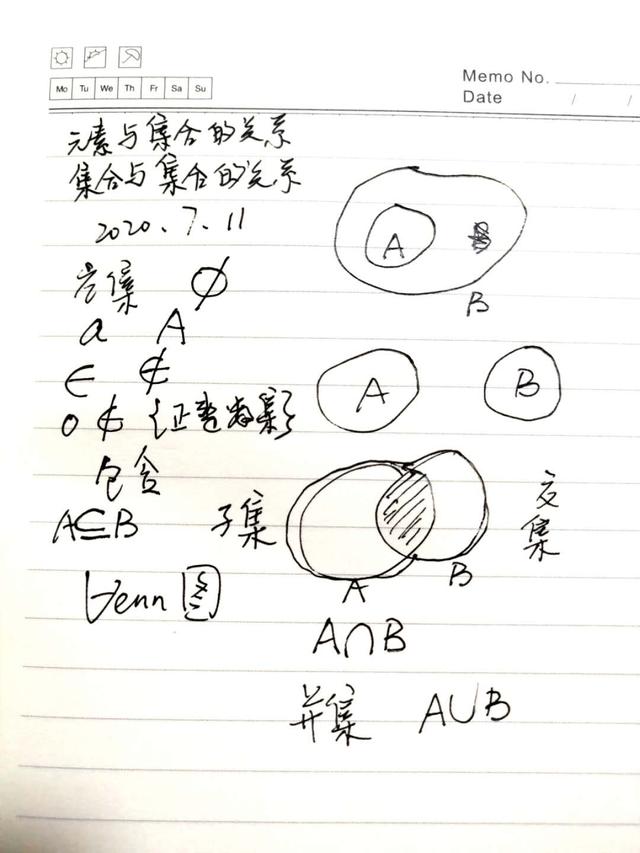 Mo Tu We Th Fr Sa Su
Memo No.
Date / /
元素与集合的关系
集合与集合的关系
2020.7.11
空集 ∅
a A
∈ ∉
0 ∉ {正整数集}
包含
A⊆B 子集
Venn图
A
B
A B
A B
交集
A∩B
并集 A∪B